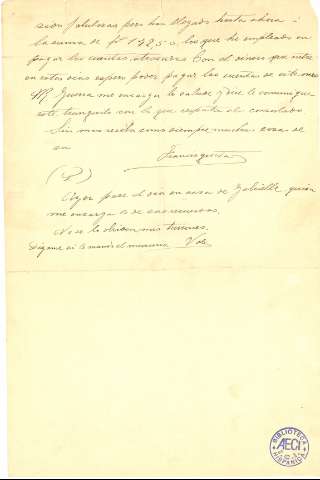 cion fabulosas pero han llegado hasta ahora á
la suma de los que he empleado en
pagar las cuentas atrasadas. Con el dinero que entre
en estos dias espero poder pagar las cuentas de este mes
Mr. Guerra me encarga le salude y que le comunique
esté tranquilo con lo que respecta al consulado
Sin mas reciba como siempre muchas cosas de
su
(P.)
Ayer pasé el dia en casa de quien
me encarga le dé sus recuerdos.
No se le olviden mis
Digame si le mando el Vale
BIBLIOTECA
AECI
HISPANICA